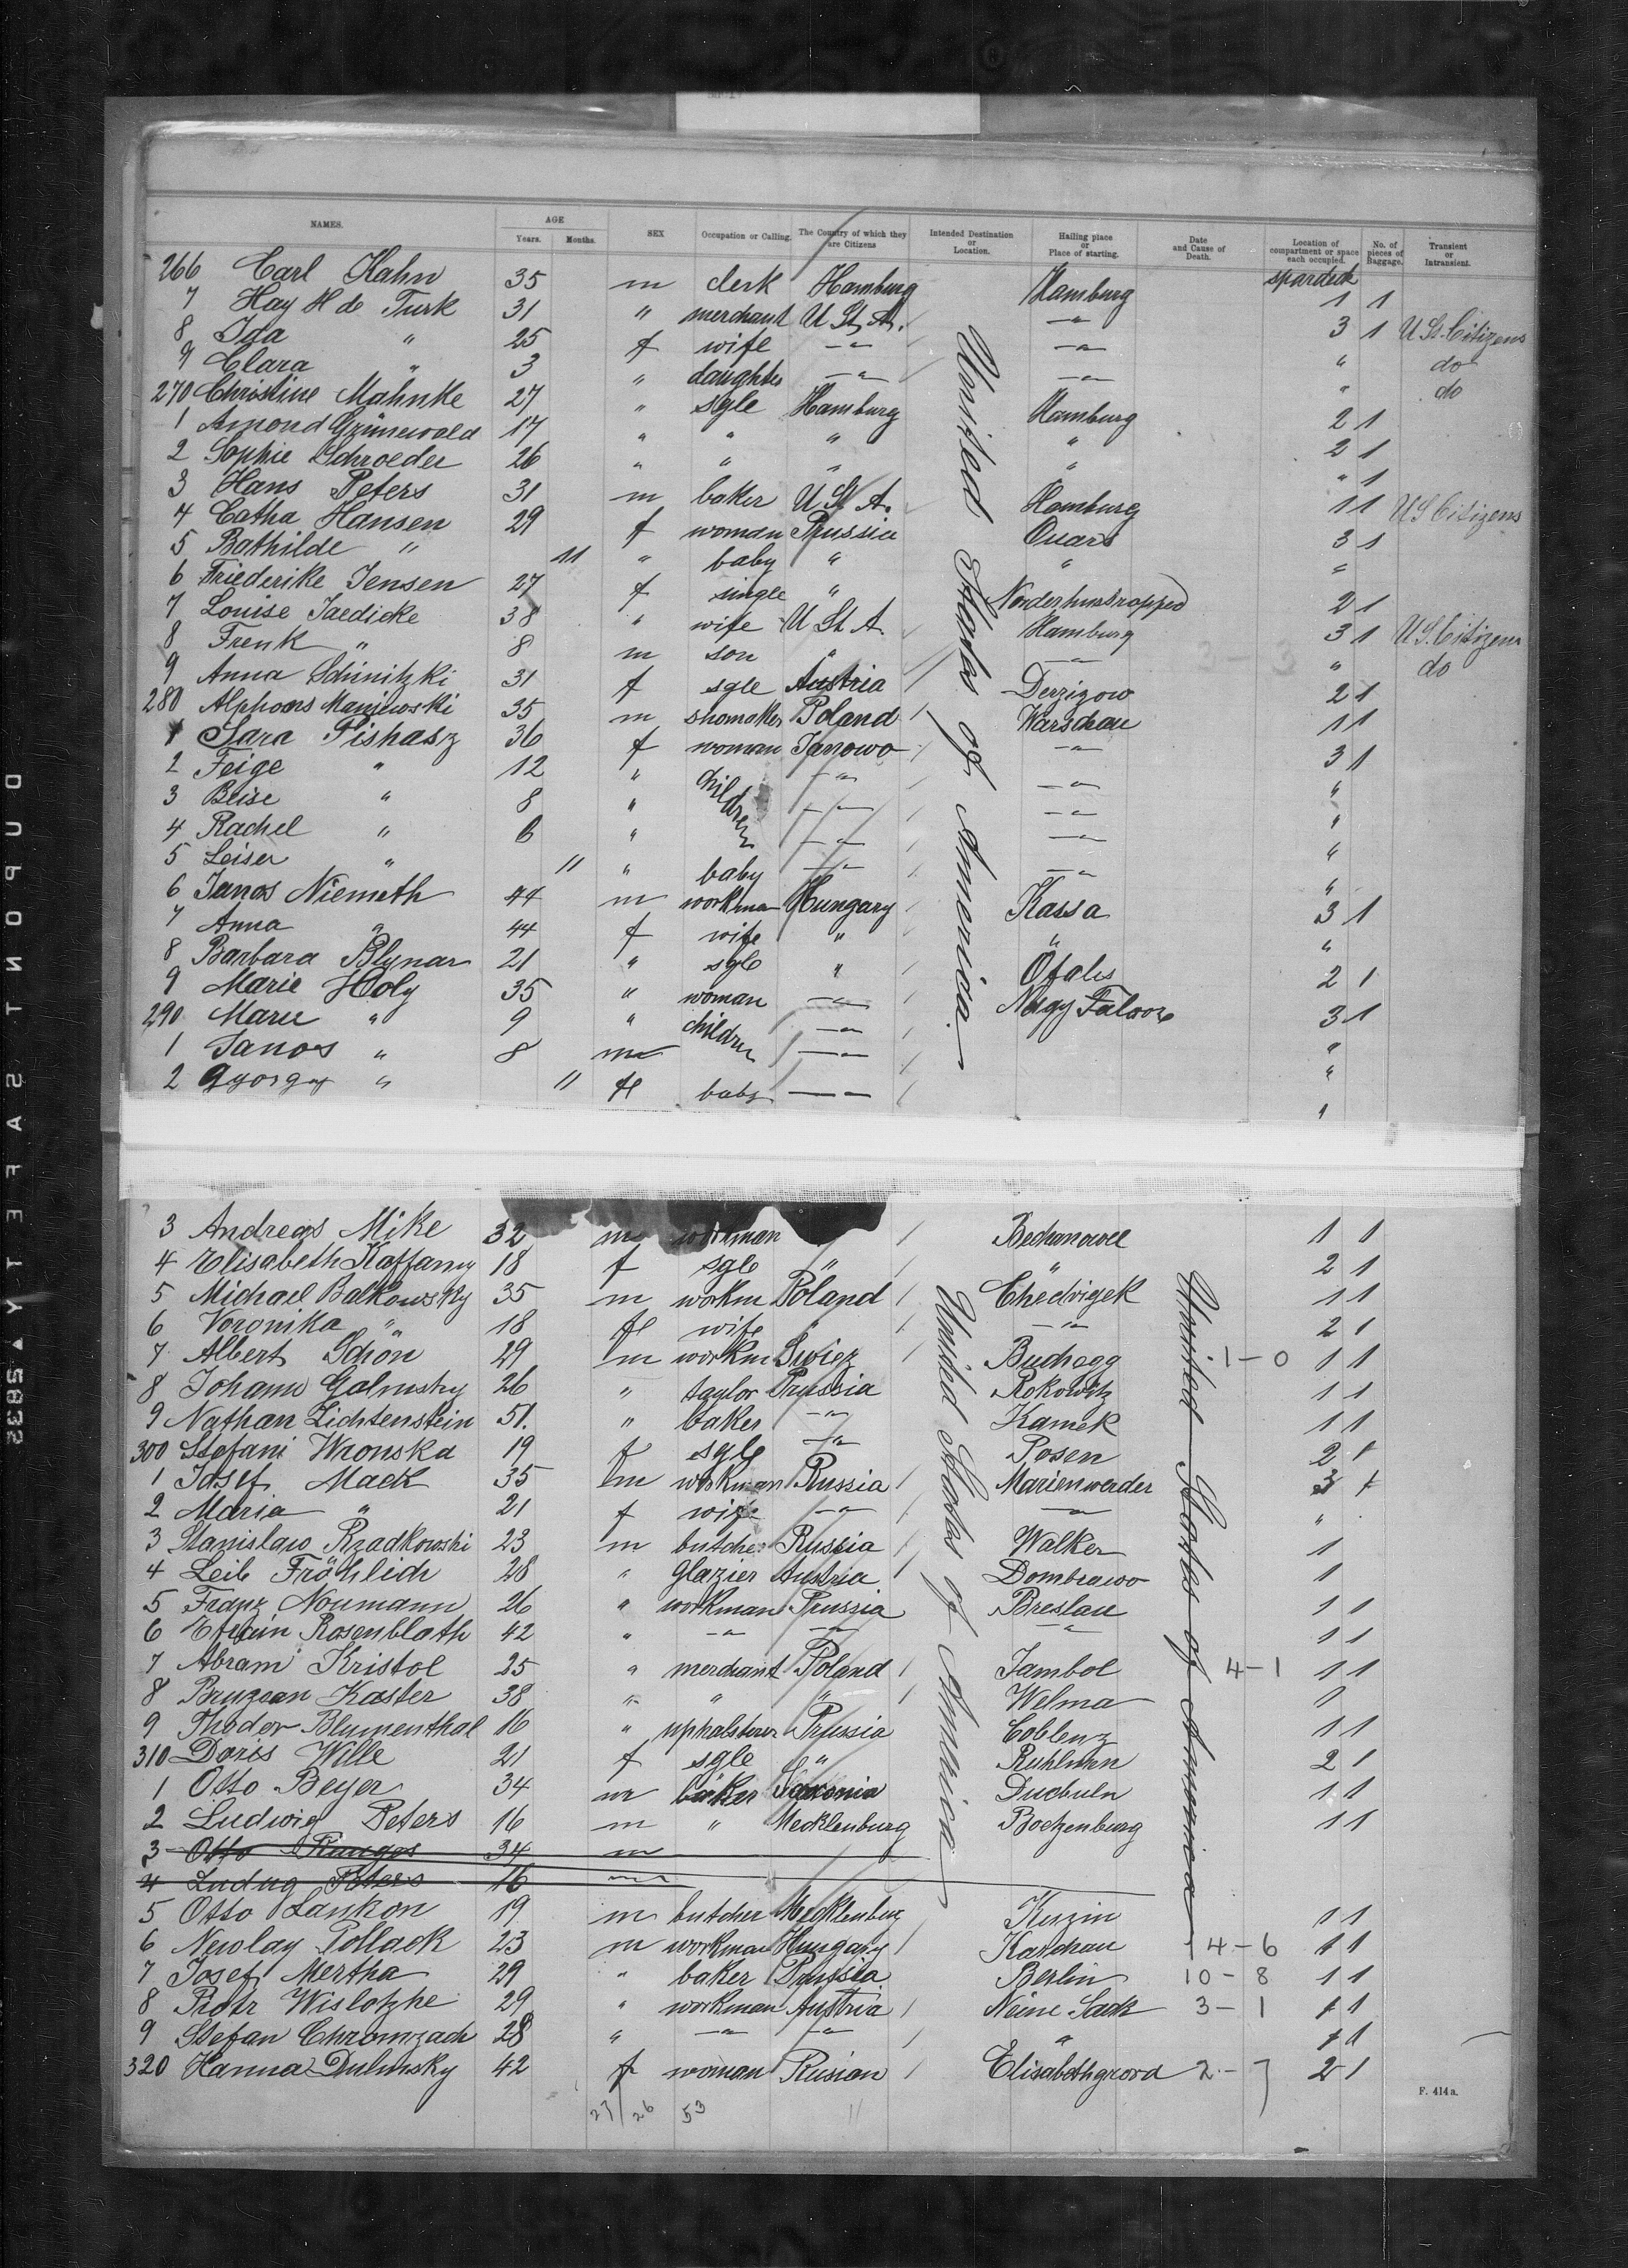 NAMES. AGE Years. Months. SEX Occupation or Calling. The Country of which they are Citizens Intended Destination or Location. Hailing place or Place of starting. Date and Cause of Death. Location of compartment or space each occupied. No. of pieces of Baggage. Transient or Intransient.
266 Carl Hahn 35 m clerk Hamburg Hamburg spardeck 1 1
7 Hay H de Turk 31 " merchant U St A. -"- 3 1 U St. Citizens
8 Ida " 25 f wife -"- -"- " do
9 Clara " 3 " daughter -"- -"- " do
270 Christine Mahnke 27 " sgle Hamburg Hamburg 2 1
1 Amond Grünewald 17 " " " " 2 1
2 Sophie Schroeder 26 " " " " " 1
3 Hans Peters 31 m baker U St A. Hamburg 1 1 U S Citizens
4 Catha Hansen 29 f woman Prussia Quars 3 1
5 Bathilde " 11 " baby " " "
6 Friederike Jensen 27 f single " 2 1
7 Louise Jaedicke 38 " wife U St A. Hamburg 3 1 U S. Citizens
8 Frenk " 8 m son " -"- " do
9 Anna Schinitzki 31 f sgle Austria Derzizow 2 1
280 Alphons Maniewski 35 m shomaker Poland Warschau 1 1
1 Sara Pishasz 36 f woman Janowo -"- 3 1
2 Feige " 12 " children -"- -"- "
3 Beise " 8 " -"- -"- "
4 Rachel " 6 " -"- -"- "
5 Leiser " 11 " baby -"- -"- "
6 Janos Niemeth 44 m workman Hungary Kassa 3 1
7 Anna " 44 f wife " " "
8 Barbara Blynar 21 " sgle " Ofalis 2 1
9 Marie Holy 35 " woman -"- Nagy 3 1
290 Marie " 9 " children -"- "
1 Janos " 8 m -"- "
2 Gyorgy " 11 f baby -"- "
United States of America
3 Andreas Mike 32 m workman 1 1
4 Elisabeth Kaffamy 18 f sgle " " 2 1
5 Michael Balkowsky 35 m workm Poland Chedvigek 1 1
6 Voronika " 18 f wife " -"- 2 1
7 Albert Schön 29 m workm Swiez Buchegg 1-0 1 1
8 Johann Galmsky 26 " taylor Prussia Rokowitz 1 1
9 Nathan Lichtenstein 51. " baker -"- Kamek 1 1
300 Stefani Wronska 19 f sgle -"- Posen 2 1
1 Josef Mack 35 m workman Russia Marienwerder 3 1
2 Maria " 21 f wife -"- -"- "
3 Stanislaw Rzadkowski 23 m butcher Russia Walker 1
4 Leib Fröhlich 28 " glazier Austria Dombrawo 1
5 Franz Noumann 26 " workman Prussia Breslau 1 1
6 Rosenblath 42 " -"- -"- -"- 1 1
7 Abram Kristol 25 " merchant Poland Jambol 4-1 1 1
8 Bruzean Kaster 38 " " " Welma 1
9 Thodor Blumenthal 16 " uphalsterer Prussia Coblenz 1 1
310 Doris Wille 21 f sgle " Ruhlman 2 1
1 Otto Beyer 34 m baker Saxonia Ducbuln 1 1
2 Ludwig Peters 16 m " Mecklenburg Boetzenburg 1 1
3 Otto 34 m
4 Ludwig Peters 16 m
5 Otto Lankon 19 m butcher Mecklenburg Kuzin 1 1
6 Newlay Pollack 23 m workman Hungary Kaschau 14-6 1 1
7 Josef Mertha 29 " baker Prussia Berlin 10-8 1 1
8 Piotr Wislotzke 29 " workman Austria Neine Sack 3-1 1 1
9 Stefan Chromzach 28 " -"- -"- " 1 1
320 Hanna Dulmsky 42 f woman Rusian Elisabethgrord 2-7 2 1
United States of America
United States of America
27/26 53 11
F. 414a.
DUPONT SAFETY 5832